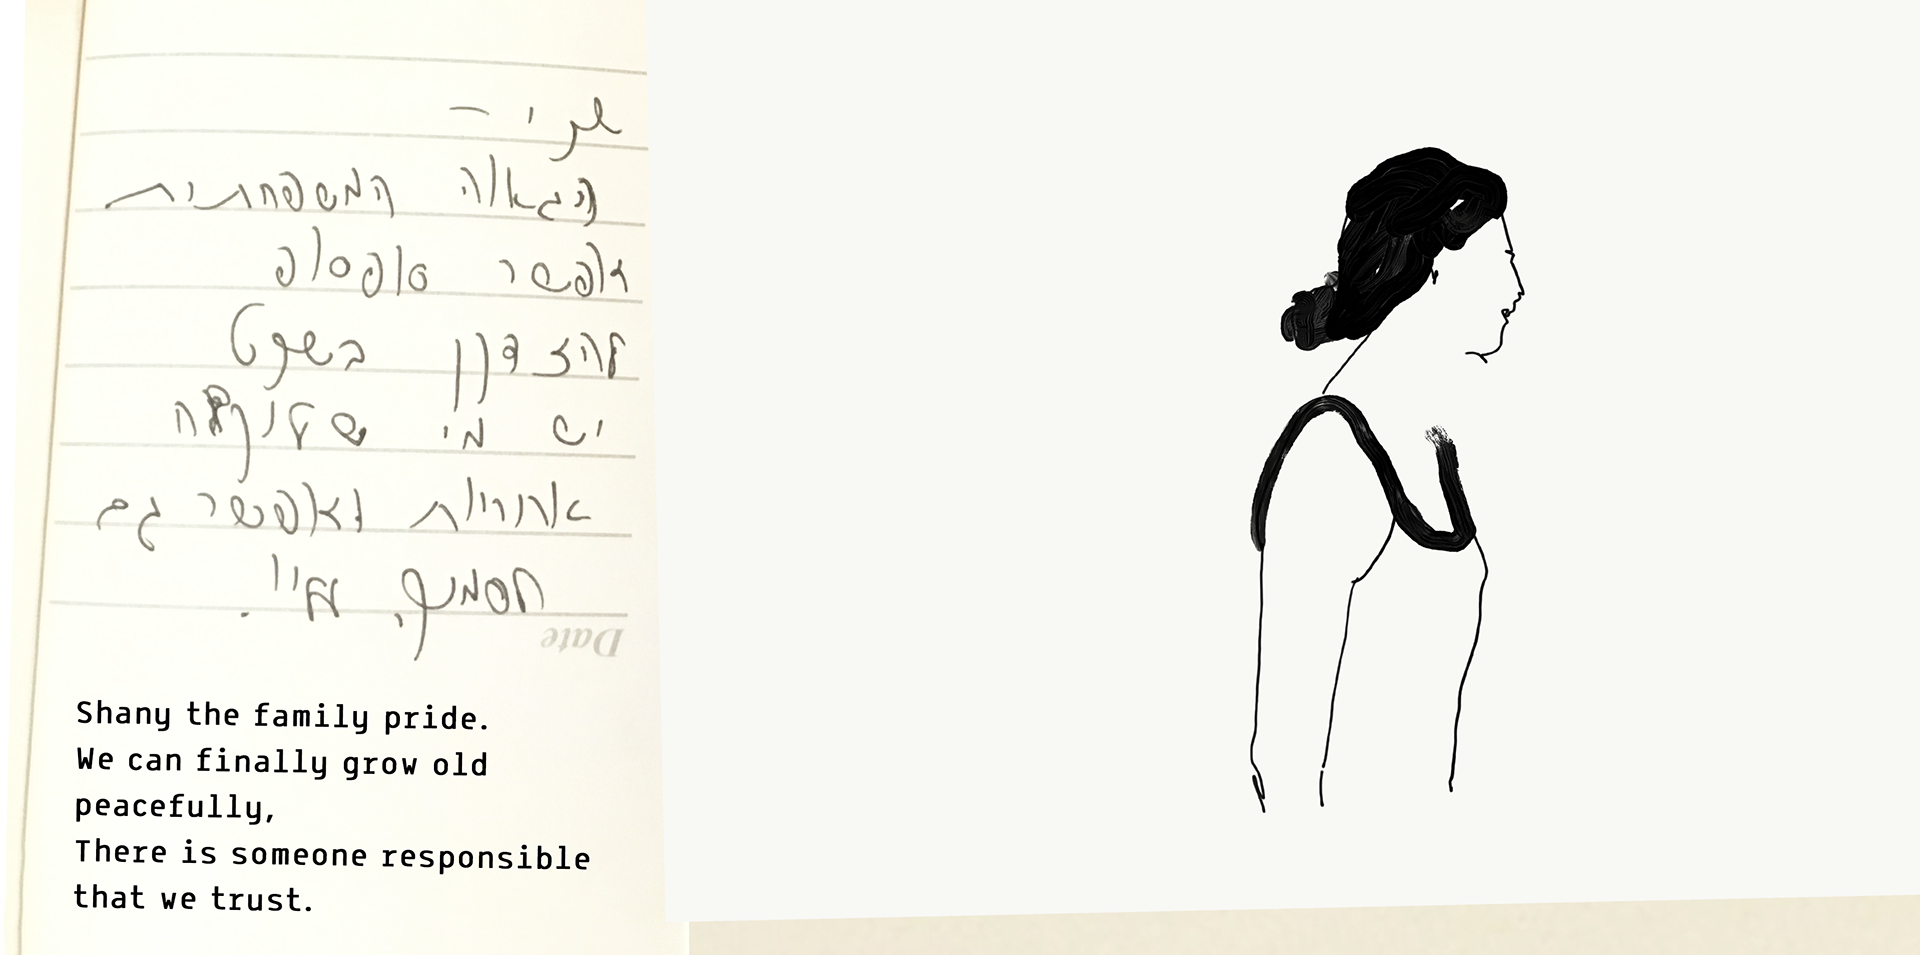 שני –
הגאוה המשפחתית
אפשר סופסוף
להזדקן בשקט
יש מי שלוקחת
אחריות ואפשר גם
לסמוך עליו.
Date
Shany the family pride.
We can finally grow old
peacefully,
There is someone responsible
that we trust.